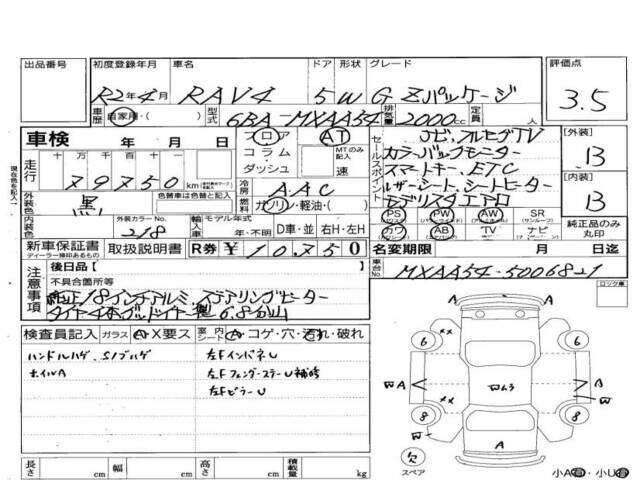 出品番号 初度登録年月 車名 ドア 形状 グレード 評価点
R2年4月 RAV4 5 W G Zパッケージ 3.5
車歴 自家用・( ) 型式 6BA-MXAA54 排気量 2000cc 定員 人
車検 年 月 日
走行 十万 万 千 百 十 一
79750 km
フロア コラム ダッシュ AT MTのみ記入 速
セールスポイント
ナビ・フルセグTV
カラーバックモニター
スマートキー、ETC
レザーシート、シートヒーター
モデリスタエアロ
【外装】 B
【内装】 B
現在色を記入
外装色 黒 色替車は色替と記入
冷房 AAC
燃料 ガソリン・軽油・( )
内装色 外装カラーNo. 218
輸入車 モデル年式 年・不明 D車・並 右H・左H
PS PW AW SR (サンルーフ)
カワ AB TV ナビ
純正品のみ丸印
新車保証書 ディーラー捺印あるもの 取扱説明書 R券 ¥10,750
名変期限 月 日迄
車台No. MXAA54-5006821
注意事項
後日品【 】
不具合箇所等
純正18インチアルミ、ステアリングヒーター
ロック車
検査員記入 ガラス A・X要ス 室内シート A・コゲ・穴・汚れ・破れ
ハンドルハゲ、S/ブハゲ
ホイルA
左FインパネU
左FフェンダーステーU補修
左FピラーU
6 6
A W A
8 8
A
スペア
長さ cm 幅 cm 高さ cm 積載量 kg
小A有・小U有